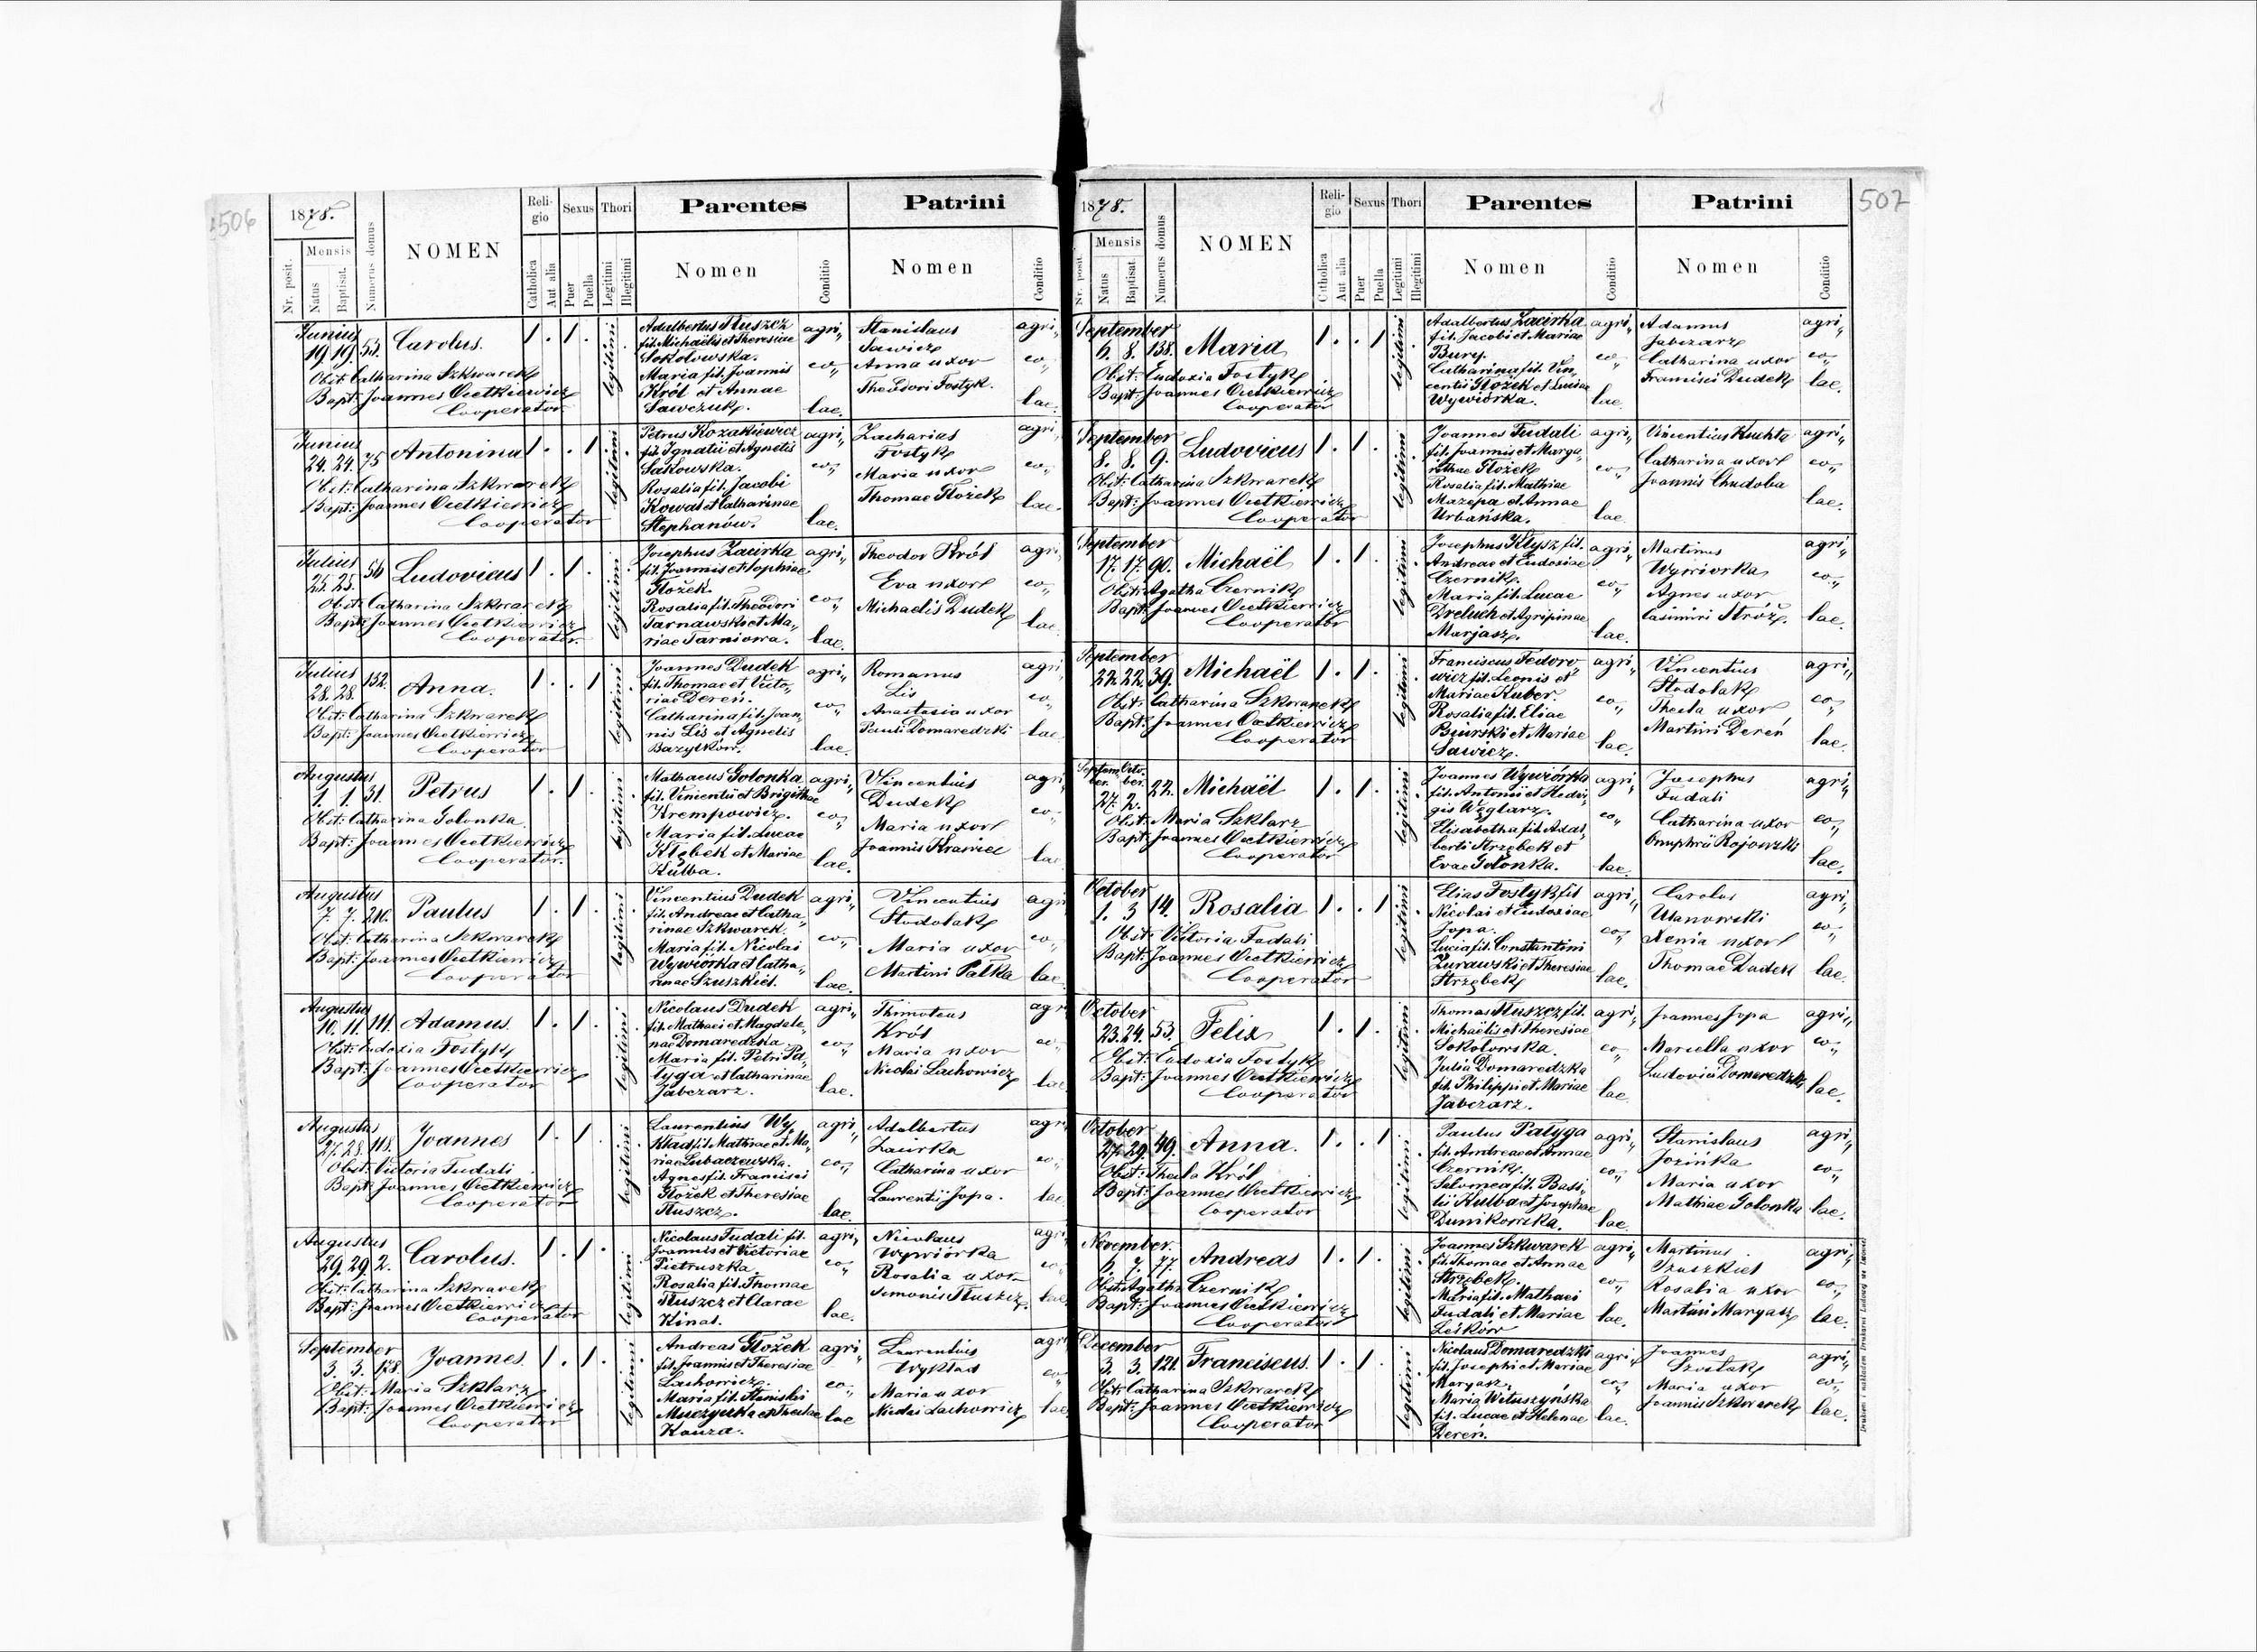 506
1878.
Nr. posit.
Mensis
Natus
Baptisat.
Numerus domus
NOMEN
Religio
Catholica
Aut alia
Sexus
Puer
Puella
Thori
Legitimi
Illegitimi
Parentes
Nomen
Conditio
Patrini
Nomen
Conditio
Junius
19 19 53. Carolus. 1. 1. legitimi
Obst: Catharina Szkwarek
Bapt: Joannes Oćetkiewicz
Cooperator
Adalbertus Tłuszcz
fil. Michaëlis et Theresiae
Sokołowska.
Maria fil. Joannis
Król et Annae
Sawczuk.
agri„
co„
lae.
Stanislaus
Sawicz
Anna uxor
Theodori Fostyk.
agri„
co„
lae.
Junius
24. 24. 75 Antonina 1. . 1 legitimi
Obst: Catharina Szkwarek
Bapt: Joannes Oćetkiewicz
Cooperator
Petrus Kozakiewicz
fil. Ignatii et Agnetis
Sakowska.
Rosalia fil. Jacobi
Kowal et Catharinae
Stephanów.
agri„
co„
lae.
Zacharias
Fostyk
Maria uxor
Thomae Głożek
agri„
co„
lae.
Julius
25. 25. 50 Ludovicus 1. 1. legitimi
Obst: Catharina Szkwarek
Bapt: Joannes Oćetkiewicz
Cooperator.
Josephus Zacirka
fil. Joannis et Sophiae
Głożek.
Rosalia fil. Theodori
Tarnawski et Ma„
riae Tarniowa.
agri„
co„
lae.
Theodor Król
Eva uxor
Michaelis Dudek
agri„
co„
lae.
Julius
28. 28. 152. Anna. 1. . 1 legitimi
Obst: Catharina Szkwarek
Bapt: Joannes Oćetkiewicz
Cooperator
Joannes Dudek
fil. Thomae et Victo„
riae Dereń.
Catharina fil. Joan„
nis Lis et Agnetis
Bazylków.
agri„
co„
lae.
Romanus
Lis
Anastasia uxor
Pauli Domaredzki
agri„
co„
lae.
Augustus
1. 1. 31. Petrus 1. 1. legitimi
Obst: Catharina Golonka
Bapt: Joannes Oćetkiewicz
Cooperator.
Mathaeus Golonka
fil. Vincentii et Brigithae
Krempowicz.
Maria fil. Lucae
Kłębek et Mariae
Kulba.
agri„
co„
lae.
Vincentius
Dudek
Maria uxor
Joannis Krawiec
agri„
co„
lae.
Augustus
7. 7. 210. Paulus 1. 1. legitimi
Obst: Catharina Szkwarek
Bapt: Joannes Oćetkiewicz
Cooperator
Vincentius Dudek
fil. Andreae et Catha„
rinae Szkwarek.
Maria fil. Nicolai
Wywiórka et Catha„
rinae Szuszkiel.
agri„
co„
lae.
Vincentius
Stodolak
Maria uxor
Martini Pałka
agri„
co„
lae.
Augustus
10. 11. 111. Adamus. 1. 1. legitimi
Obst: Eudoxia Fostyk
Bapt: Joannes Oćetkiewicz
Cooperator
Nicolaus Dudek
fil. Mathaei et Magdale„
nae Domaredzka.
Maria fil. Petri Pa„
łyga et Catharinae
Jabczarz.
agri„
co„
lae.
Thimoteus
Król
Maria uxor
Nicolai Lachowicz
agri„
co„
lae.
Augustus
27. 28. 118. Joannes 1. 1. legitimi
Obst: Victoria Fudali
Bapt: Joannes Oćetkiewicz
Cooperator
Laurentius Wy„
kład fil. Mathiae et Ma„
riae Lubaczewska.
Agnes fil. Francisci
Głożek et Theresiae
Tłuszcz.
agri„
co„
lae.
Adalbertus
Zacirka
Catharina uxor
Laurentii Jopa.
agri„
co„
lae.
Augustus
29. 29. 2. Carolus. 1. 1. legitimi
Obst: Catharina Szkwarek
Bapt: Joannes Oćetkiewicz
Cooperator
Nicolaus Fudali fil.
Joannis et Victoriae
Pietruszka.
Rosalia fil. Thomae
Tłuszcz et Clarae
Kinal.
agri„
co„
lae.
Nicolaus
Wywiórka
Rosalia uxor
Simonis Tłuszcz.
agri„
co„
lae.
September
3. 3. 178. Joannes. 1. 1. legitimi
Obst: Maria Szklarz
Bapt: Joannes Oćetkiewicz
Cooperator
Andreas Głożek
fil. Joannis et Theresiae
Lachowicz.
Maria fil. Stanislai
et Theclae
agri„
co„
lae
Laurentius
Wykład
Maria uxor
Nicolai Lachowicz
agri„
co„
lae.
507
1878.
Nr. posit.
Mensis
Natus
Baptisat.
Numerus domus
NOMEN
Religio
Catholica
Aut alia
Sexus
Puer
Puella
Thori
Legitimi
Illegitimi
Parentes
Nomen
Conditio
Patrini
Nomen
Conditio
September
6. 8. 138. Maria 1. . 1 legitimi
Obst: Eudoxia Fostyk
Bapt: Joannes Oćetkiewicz
Cooperator
Adalbertus Zacirka
fil. Jacobi et Mariae
Bury.
Catharina fil. Vin„
centii Głożek et Luciae
Wywiórka.
agri„
co„
lae.
Adamus
Jabczarz
Catharina uxor
Francisci Dudek
agri„
co„
lae.
September
8. 8. 9. Ludovicus 1. 1. legitimi
Obst: Catharina Szkwarek
Bapt: Joannes Oćetkiewicz
Cooperator
Joannes Fudali
fil. Joannis et Marga„
rithae Głożek
Rosalia fil. Mathiae
Mazepa et Annae
Urbańska.
agri„
co„
lae.
Vincentius Kuchta
Catharina uxor
Joannis Chudoba
agri„
co„
lae.
September
17. 17. 90. Michaël 1. 1. legitimi
Obst: Agatha Czernik
Bapt: Joannes Oćetkiewicz
Cooperator
Josephus Kłysz fil.
Andreae et Eudoxiae
Czernik.
Maria fil. Lucae
Dreluch et Agripinae
Marjasz.
agri„
co„
lae.
Martinus
Wywiorka
Agnes uxor
Casimiri Stróż.
agri„
co„
lae.
September
22. 22. 39. Michaël 1. 1. legitimi
Obst: Catharina Szkwarek
Bapt: Joannes Oćetkiewicz
Cooperator
Franciscus Fedoro„
wicz fil. Leonis et
Mariae Kuber.
Rosalia fil. Eliae
Biurski et Mariae
Sawicz.
agri„
co„
lae.
Vincentius
Stodolak
Thecla uxor
Martini Dereń
agri„
co„
lae.
Septem„ Octo„
ber. ber.
27. 2. 22. Michaël 1. 1. legitimi
Obst: Maria Szklarz
Bapt: Joannes Oćetkiewicz
Cooperator
Joannes Wywiórka
fil. Antonii et Hedvi„
gis Węglarz.
Elisabetha fil. Adal„
berti Strzębek et
Evae Golonka.
agri„
co„
lae.
Josephus
Fudali
Catharina uxor
Onuphrii Rojowski
agri„
co„
lae.
October
1. 3 14. Rosalia 1. . 1 legitimi
Obst: Viktoria Fudali
Bapt: Joannes Oćetkiewicz
Cooperator
Elias Fostyk fil
Nicolai et Eudoxiae
Jopa.
Lucia fil. Constantini
Żurawski et Theresiae
Strzębek
agri„
co„
lae.
Carolus
Ulanowski
Xenia uxor
Thomae Dudek
agri„
co„
lae.
October
23. 24. 53. Felix 1. 1. legitimi
Obst: Eudoxia Fostyk
Bapt: Joannes Oćetkiewicz
Cooperator
Thomas Tłuszcz fil.
Michaëlis et Theresiae
Sokołowska.
Julia Domaredzka
fil. Philippi et Mariae
Jabczarz.
agri„
co„
lae
Joannes Jopa
Marcella uxor
Ludovici Domaredzki
agri„
co„
lae.
October
27. 29. 49. Anna. 1. . 1 legitimi
Obst: Thecla Król
Bapt: Joannes Oćetkiewicz
Cooperator
Paulus Pałyga
fil. Andreae et Annae
Czernik.
Salomea fil. Basi„
lii Kulba et Josephae
Dunikowska.
agri„
co„
lae.
Stanislaus
Jozińka
Maria uxor
Mathiae Golonka
agri„
co„
lae.
November.
6. 7. 77. Andreas 1. 1. legitimi
Obst: Agatha Czernik
Bapt: Joannes Oćetkiewicz
Cooperator
Joannes Szkwarek
fil. Thomae et Annae
Strzębek.
Maria fil. Mathaei
Fudali et Mariae
Leśków
agri„
co„
lae.
Martinus
Szuszkiel
Rosalia uxor
Martini Maryasz
agri„
co„
lae.
December
3. 3. 121. Franciscus. 1. 1. legitimi
Obst: Catharina Szkwarek
Bapt: Joannes Oćetkiewicz
Cooperator
Nicolaus Domaredzki
fil. Josephi et Mariae
Maryasz.
Maria Wituszyńska
fil. Lucae et Helenae
Dereń.
agri„
co„
lae.
Joannes
Maria uxor
Joannis Szkwarek
agri„
co„
lae.